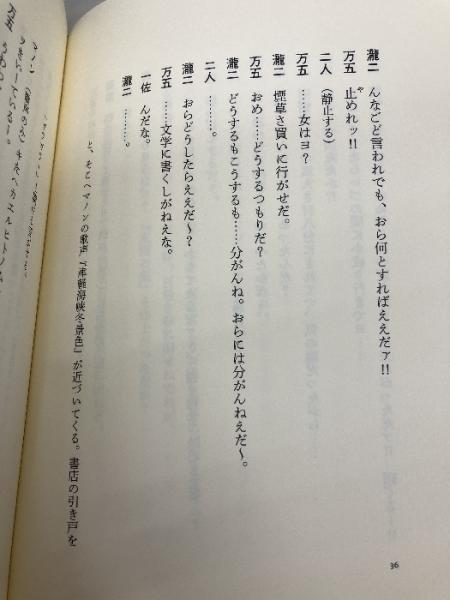 瀧二　んなごど言われでも、おら何とすればええだァ!!
万五　止めれッ!!
や
二人　(静止する)
万五　……女はヨ?
瀧二　煙草さ買いに行がせだ。
万五　おめ……どうするつもりだ?
瀧二　どうするもこうするも……分がんね。おらには分がんねえだ〜。
二人　………。
瀧二　おらどうしたらええだ〜?
万五　……文学に書くしがねえな。
一佐　んだな。
瀧二　………。
と、そこへマノンの歌声『津軽海峡冬景色』が近づいてくる。書店の引き戸を
36
マノン
万五